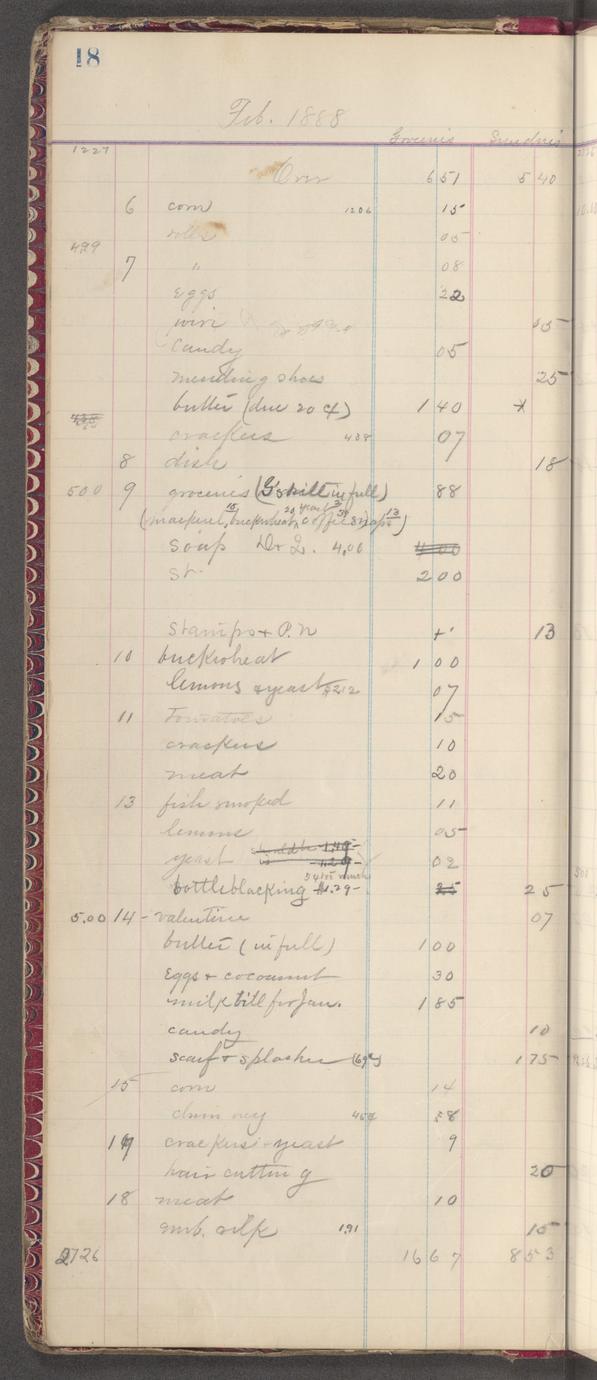 18
Feb. 1888
Groceries Sundries
1227
Over 651 540
6 corn 1206 15
rolls 05
499
7 " 08
Eggs 22
wire
Candy 05
mending shoes 25
butter (due 20 ct) 140
crackers 438 07
8 dish 18
500 9 groceries (G's bill in full) 88
(mackerel, 15 buckwheat, 20 yeast 3 coffee 38 soap 13)
Soap Dr L. 4,00 400
St. 200
Stamps + P.N 13
10 buckwheat 100
lemons + yeast 07
11 Tomatoes 15
crackers 10
meat 20
13 fish smoked 11
lemons 05
yeast 1.49 02
1.29
bottle blacking $1.29 25 25
5.00 14 - valentine 07
butter (in full) 100
Eggs + cocoanut 30
milk bill for Jan. 185
candy 10
scarf + splasher (69¢) 175
15 corn 14
chimney 454 58
17 crackers - yeast 9
hair cutting 20
18 meat 10
emb. silk 191 15
2726 1667 853